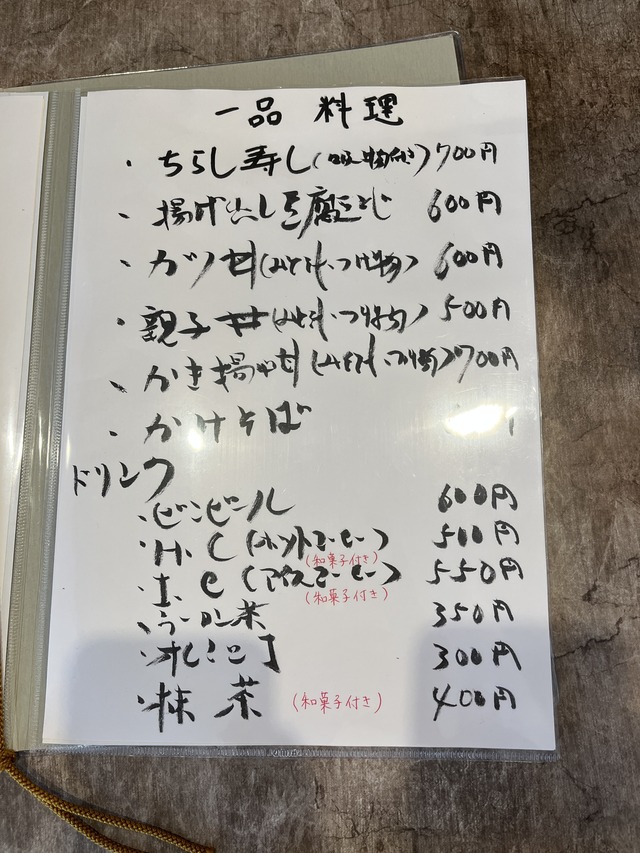 一品 料理
・ちらし寿し(吸い物付き)700円
・揚げ出し豆腐とじ 600円
・カツ丼(みそ汁・つけ物) 600円
・親子丼(みそ汁・つけ物) 500円
・かき揚げ丼(みそ汁・つけ物)700円
・かけそば
ドリンク
・ビンビール 600円
・H.C(ホットコーヒー) 500円
(和菓子付き)
・I.C(アイスコーヒー) 550円
(和菓子付き)
・ウーロン茶 350円
・オレンジ 300円
・抹茶 (和菓子付き) 400円